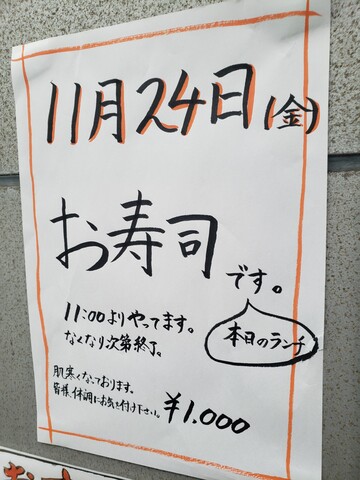 11月24日(金)
お寿司です。
本日のランチ
11:00よりやってます。
なくなり次第終了。
肌寒くなっております。
皆様、体調にお気を付け下さい。
¥1.000